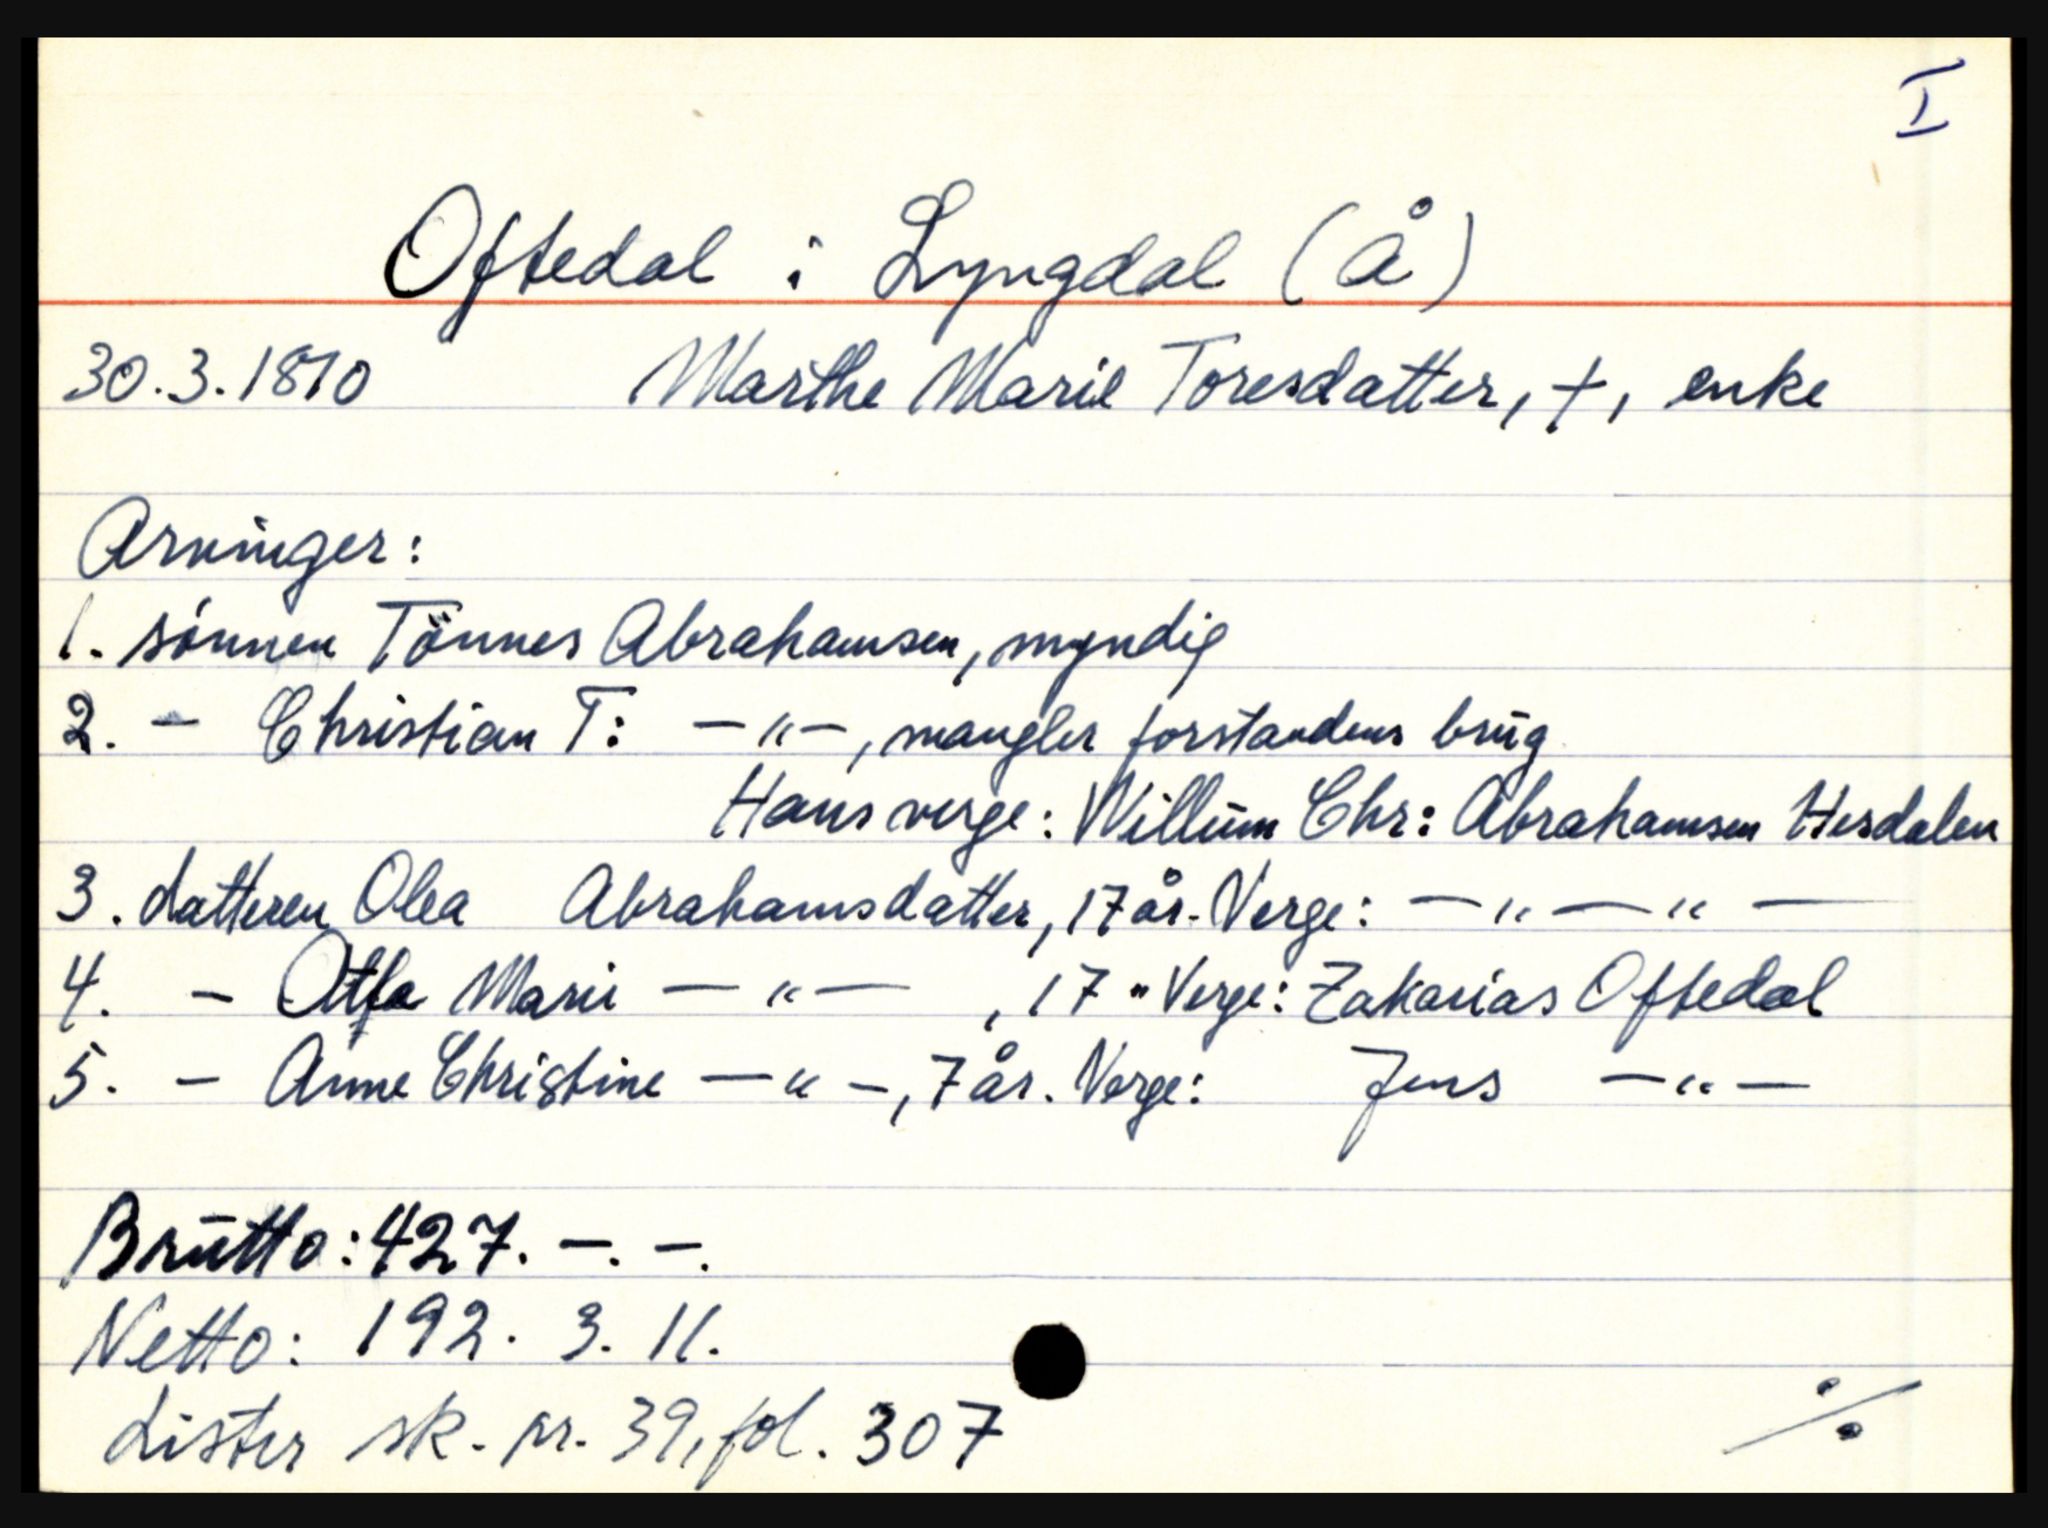 I
Oftedal i Lyngdal (Å)
30.3.1870 Marthe Marie Toresdatter, †, enke
Arvinger:
1. sönnen Tönnes Abrahamsen, myndig
2. - Christian T: -"-, mangler forstandens brug
Hans verge: Willum Chr: Abrahamsen Hesdalen
3. datteren Olea Abrahamsdatter, 17 år. Verge: -"-"-
4. - Marie -"-, 17 " Verge: Zakarias Oftedal
5. - Anne Christine -"-, 7 år. Verge: Jens -"-
Brutto: 427. -. -.
Netto: 192. 3. 11.
Lister sk. pr. 39, fol. 307
./.